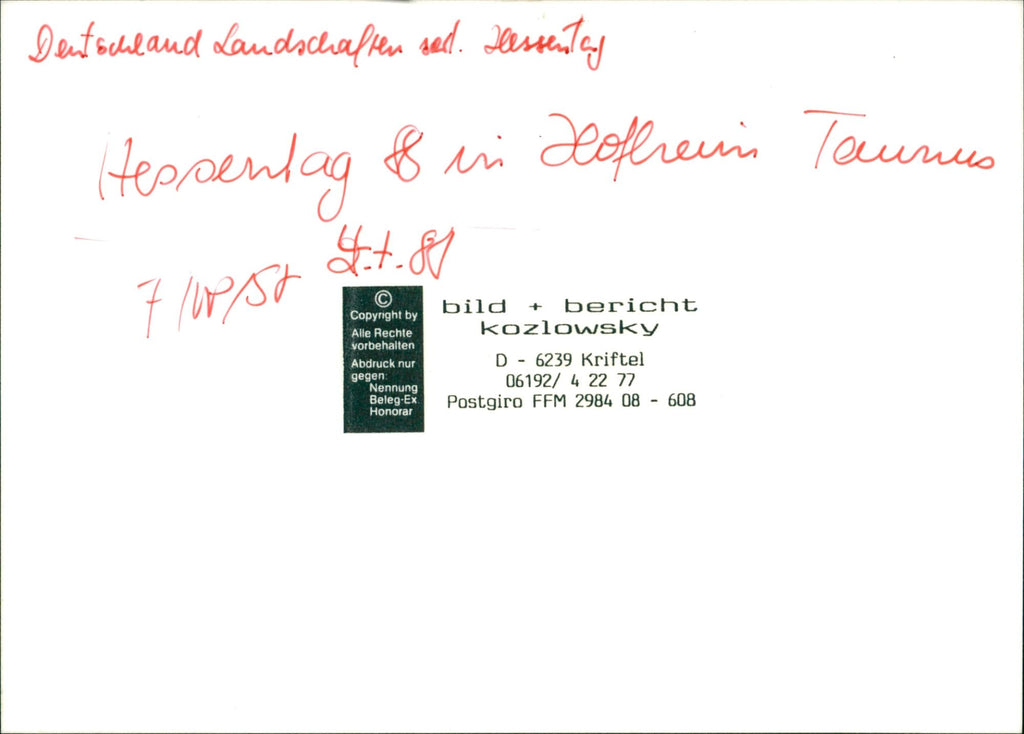 Deutschland Landschaften Hessentag
Hessentag 88 in Hofheim Taunus
©
Copyright by
Alle Rechte
vorbehalten
Abdruck nur
gegen:
Nennung
Beleg-Ex.
Honorar
bild + bericht
kozlowsky
D - 6239 Kriftel
06192/ 4 22 77
Postgiro FFM 2984 08 - 608